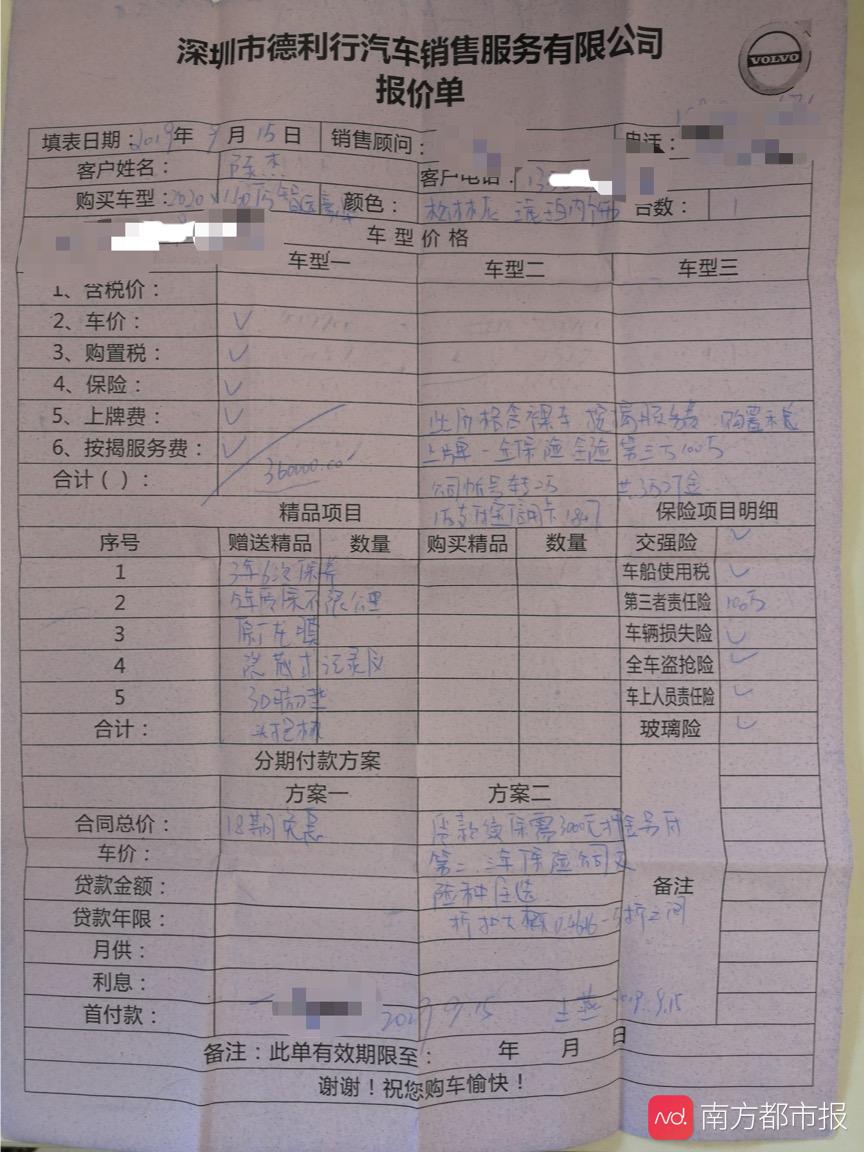 深圳市德利行汽车销售服务有限公司
VOLVO
报价单
填表日期：2019年 9月15日 销售顾问： 电话：
客户姓名： 陈杰 客户电话：13
购买车型：2020 颜色： 松林灰 台数： 1
车型价格
车型一 车型二 车型三
1、含税价：
2、车价： ✓
3、购置税： ✓
4、保险： ✓
5、上牌费： ✓ 此价格含裸车 按揭服务费 购置税
6、按揭服务费： ✓ 上牌 一年保险 全险 第三方100万
合计（ ）： 36000.00 公司帐号转2万 共
精品项目 保险项目明细
序号 赠送精品 数量 购买精品 数量 交强险 ✓
1 3年6次保养 车船使用税 ✓
2 5年质保不限公里 第三者责任险 100万
3 原厂龙膜 车辆损失险 ✓
4 隐藏式记录仪 全车盗抢险 ✓
5 3D脚垫 车上人员责任险 ✓
合计： 头枕 玻璃险 ✓
分期付款方案
方案一 方案二
合同总价： 18期免息 贷款续保需3000元押金
车价： 第二、三年保险公司及
贷款金额： 险种任选 备注
贷款年限： 折扣大概 折之间
月供：
利息：
首付款： 2019 9.15 2019.9.15
备注：此单有效期限至： 年 月 日
谢谢！祝您购车愉快！
nd. 南方都市报